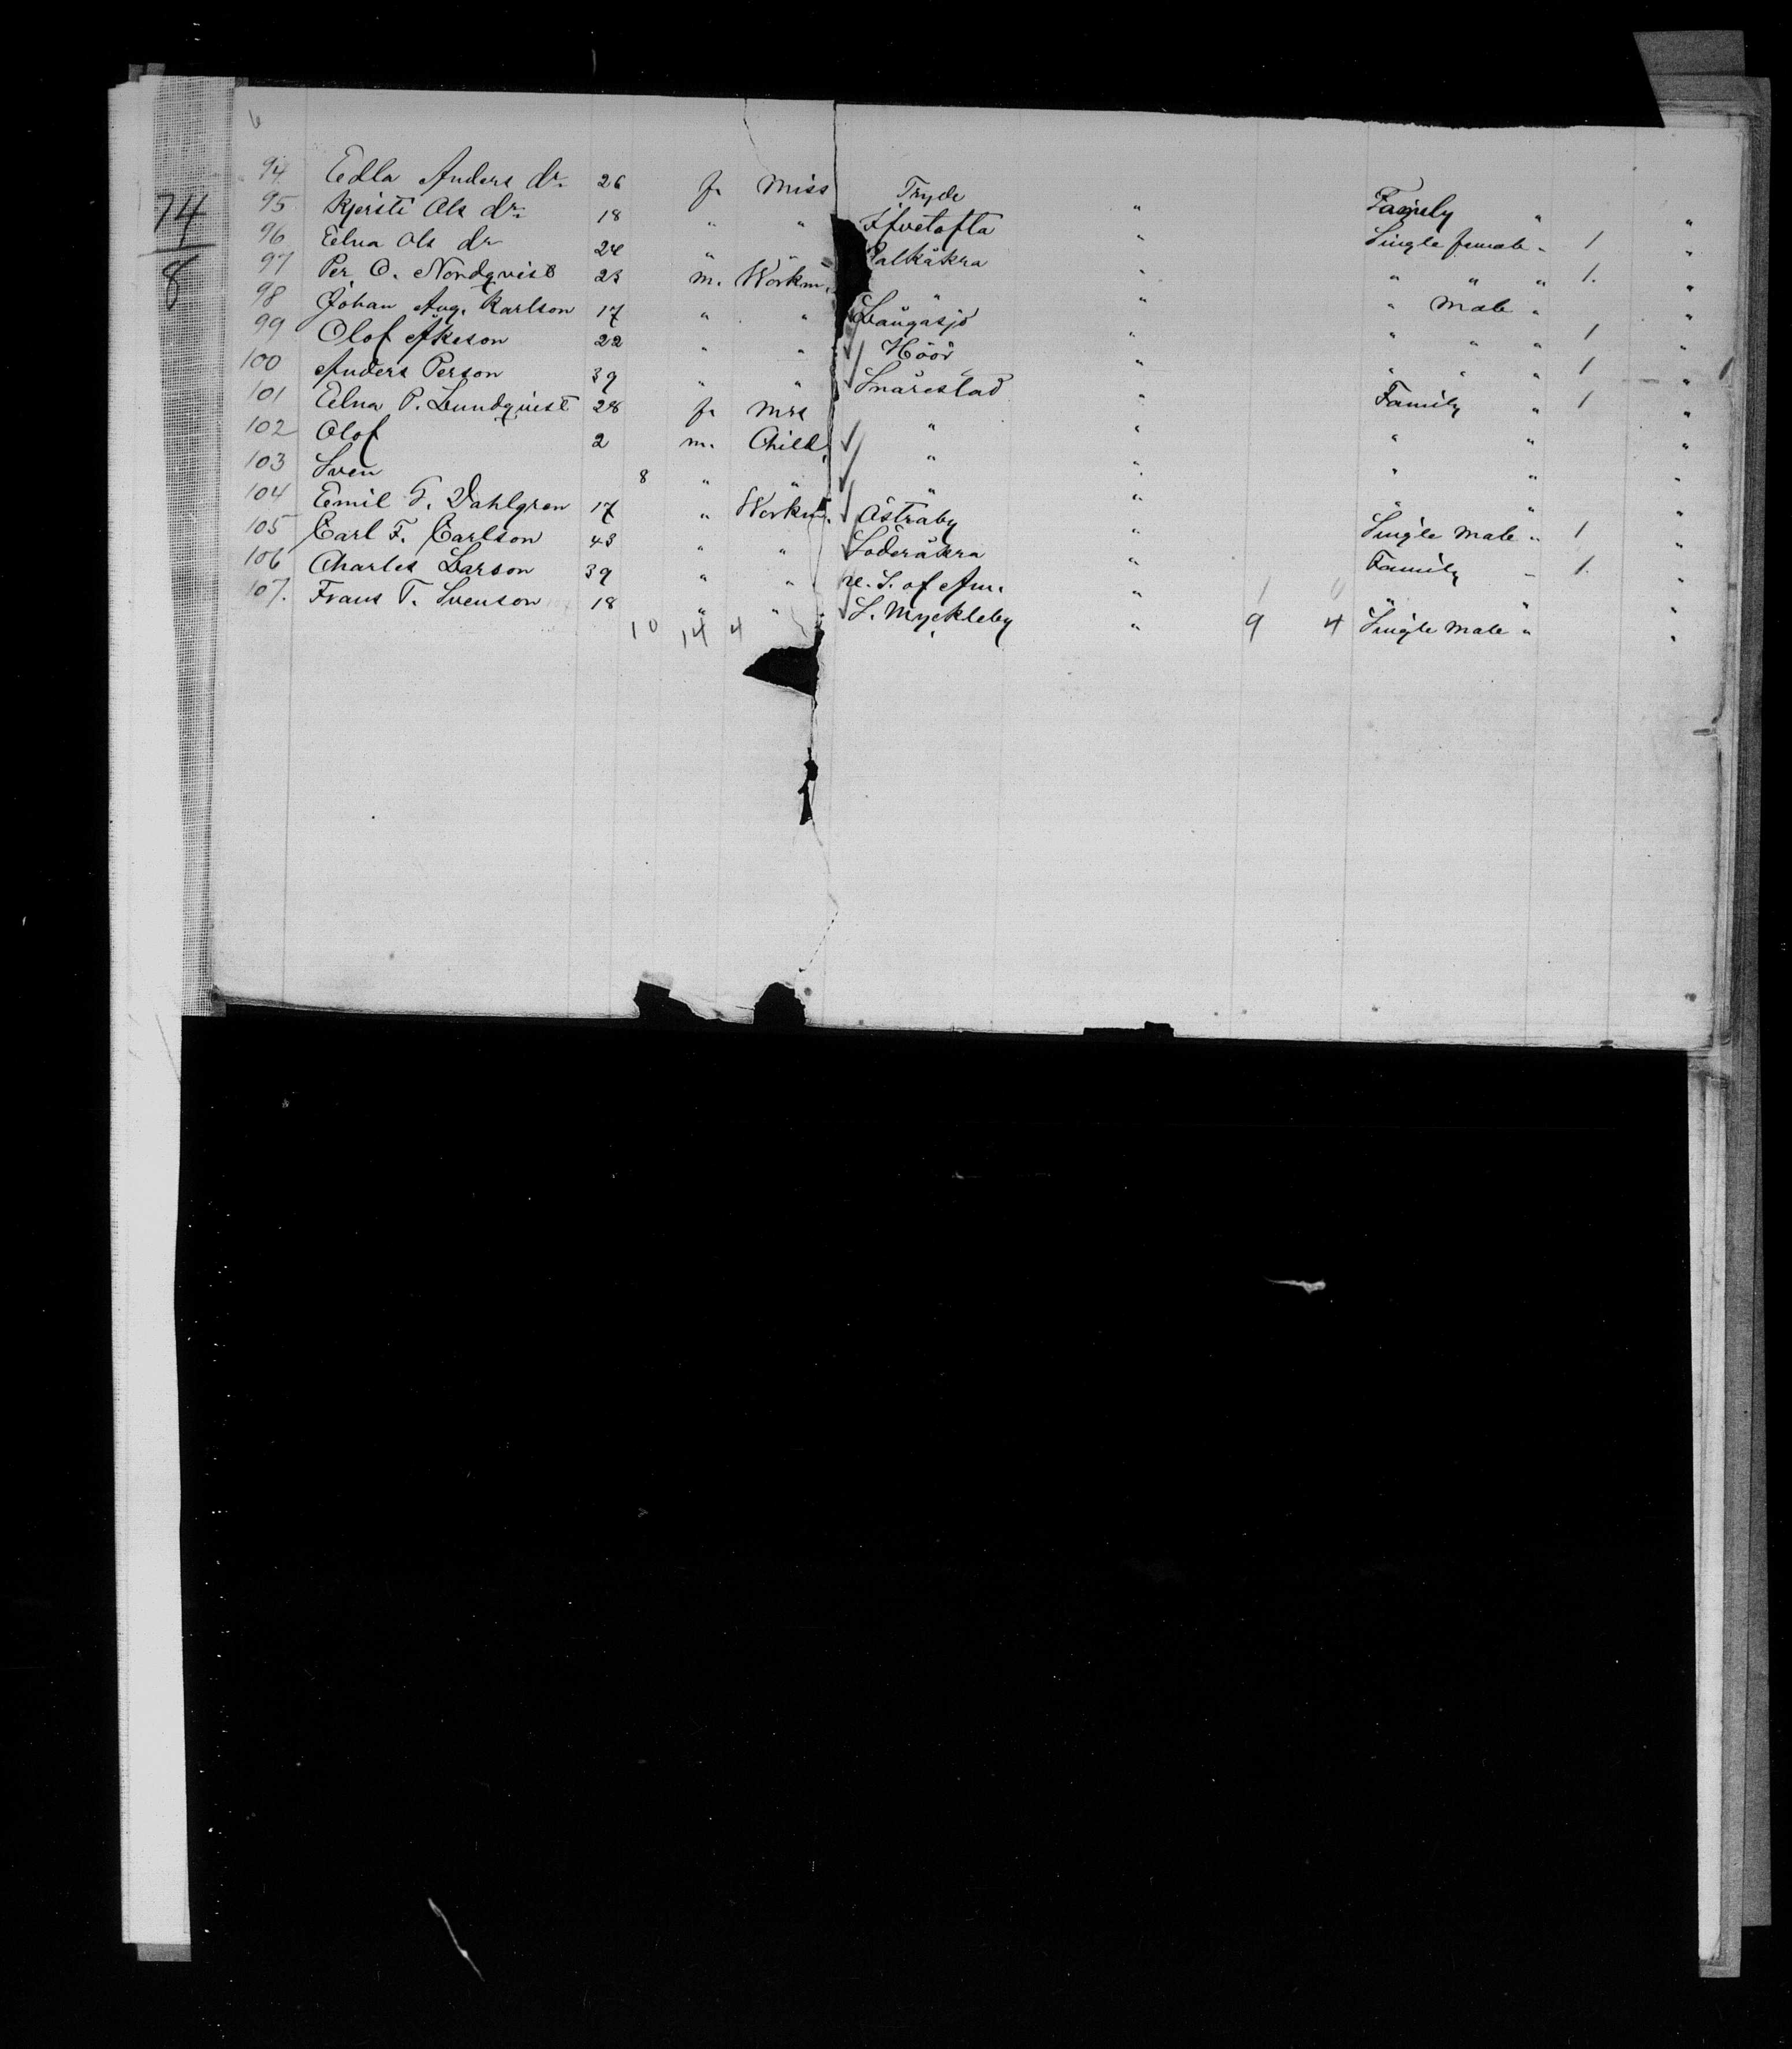 6
74
8
94 Edla Anders dr. 26 f. Miss Tryde " Family " "
95 Kjersti Ols dr. 18 " " Ifvetofta " Single female " 1 "
96 Elna Ols dr 24 " " Balkåkra " " " " 1. "
97 Per O. Nordqvist 23 m. Workm. " " Male " "
98 Johan Aug. Karlson 17 " " Långasjö " " " " 1 "
99 Olof Åkeson 22 " " ✓ Höör " " " " 1 "
100 Anders Person 39 " " ✓ Snårestad " Family " 1 "
101 Elna P. Lundqvist 28 f. Mrs " " " " "
102 Olof 2 m. Child ✓ " " " " "
103 Sven 8 " " ✓ " " " " "
104 Emil T. Dahlgren 17 " Workm. ✓ Åstraby " Single Male " 1 "
105 Carl F. Carlson 43 " " ✓ Söderåkra " Family " 1. "
106 Charles Larson 39 " " U. S. of Am. " " "
107. Frans T. Svenson 18 " " ✓ S. Myckleby " Single Male " "
10 14 4 9 4